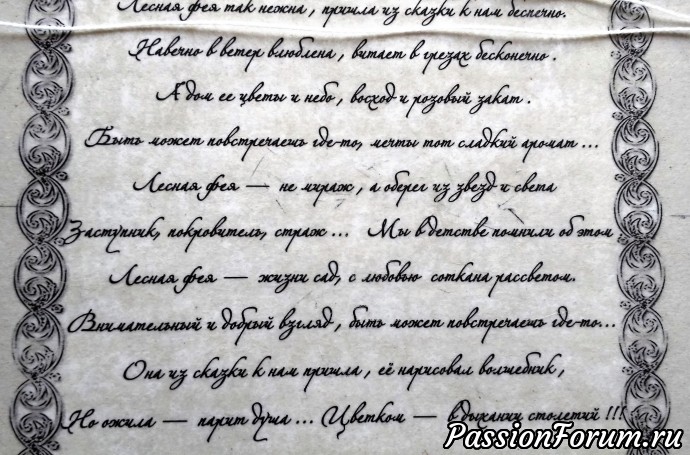 Лесная фея так нежна, пришла из сказки к нам беспечно.
Навечно в ветер влюблена, витает в грезах бесконечно.
А дом ее цветы и небо, восход и розовый закат.
Быть может повстречаешь где-то, мечты тот сладкий аромат ...
Лесная фея — не мираж, а оберег из звезд и света
Заступник, покровитель, страж ... Мы в детстве помнили об этом
Лесная фея — жизни сад, с любовью соткана рассветом.
Внимательный и добрый взгляд, быть может повстречаешь где-то...
Она из сказки к нам пришла, её нарисовал волшебник,
Но ожила — парит душа ... Цветком — в дыхании столетий !!!
PassionForum.ru